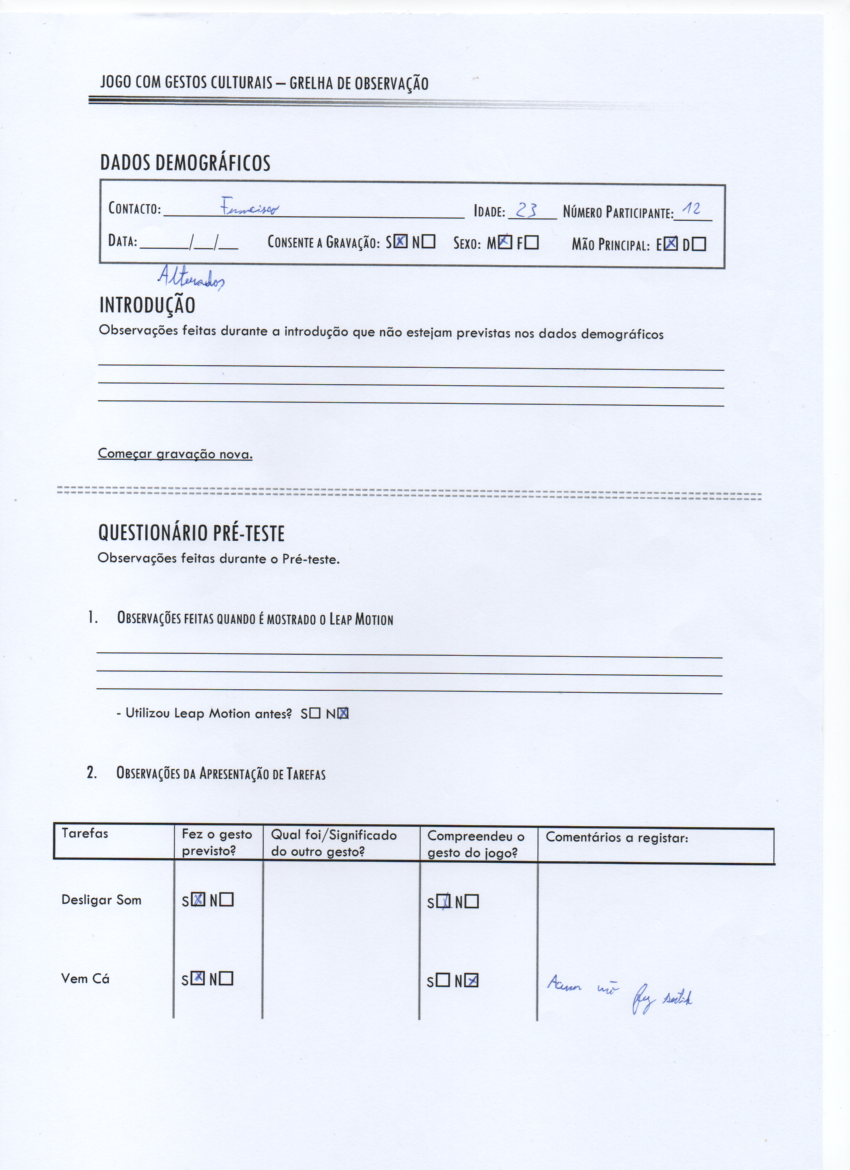 JOGO COM GESTOS CULTURAIS – GRELHA DE OBSERVAÇÃO
DADOS DEMOGRÁFICOS
CONTACTO: Francisco IDADE: 23 NÚMERO PARTICIPANTE: 12
DATA: ______/__/__ CONSENTE A GRAVAÇÃO: S☒ N☐ SEXO: M☒ F☐ MÃO PRINCIPAL: E☒ D☐
Alterados
INTRODUÇÃO
Observações feitas durante a introdução que não estejam previstas nos dados demográficos
Começar gravação nova.
QUESTIONÁRIO PRÉ-TESTE
Observações feitas durante o Pré-teste.
1. OBSERVAÇÕES FEITAS QUANDO É MOSTRADO O LEAP MOTION
- Utilizou Leap Motion antes? S☐ N☒
2. OBSERVAÇÕES DA APRESENTAÇÃO DE TAREFAS
Tarefas Fez o gesto previsto? Qual foi/Significado do outro gesto? Compreendeu o gesto do jogo? Comentários a registar:
Desligar Som S☒ N☐ S☒ N☐
Vem Cá S☒ N☐ S☐ N☒ não faz